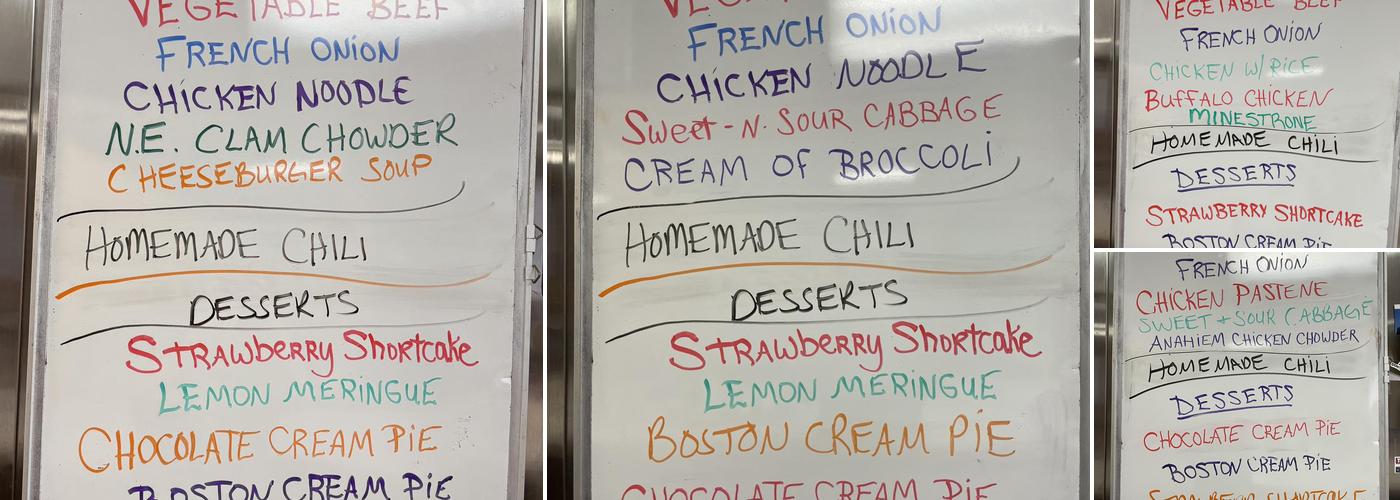 VEGETABLE BEEF
FRENCH ONION
CHICKEN NOODLE
N.E. CLAM CHOWDER
CHEESEBURGER SOUP
HOMEMADE CHILI
DESSERTS
STRAWberry Shortcake
LEMON MERINGUE
CHOCOLATE CREAM PIE
BOSTON CREAM PIE
FRENCH ONION
CHICKEN NOODLE
Sweet-N-SOUR CABBAGE
CREAM OF BROCCOLI
HOMEMADE CHILI
DESSERTS
STRAWberry Shortcake
LEMON MERINGUE
BOSTON CREAM PIE
CHOCOLATE CREAM PIE
VEGETABLE BEEF
FRENCH ONION
CHICKEN W/ RICE
BUFFALO CHICKEN
MINESTRONE
HOMEMADE CHILI
DESSERTS
STRAWBERRY SHORTCAKE
BOSTON CREAM PIE
FRENCH ONION
CHICKEN PASTENE
SWEET + SOUR CABBAGE
ANAHIEM CHICKEN CHOWDER
HOMEMADE CHILI
DESSERTS
CHOCOLATE CREAM PIE
BOSTON CREAM PIE
STRAWBERRY SHORTCAKE